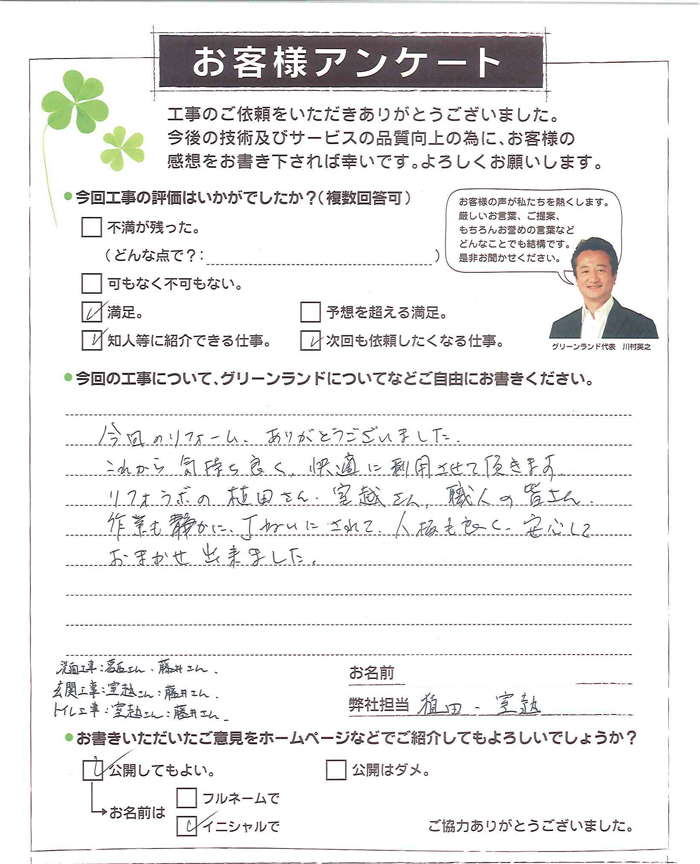 お客様アンケート
工事のご依頼をいただきありがとうございました。
今後の技術及びサービスの品質向上の為に、お客様の
感想をお書き下されば幸いです。よろしくお願いします。
今回工事の評価はいかがでしたか？（複数回答可）
不満が残った。
（どんな点で？：　）
可もなく不可もない。
満足。
予想を超える満足。
知人等に紹介できる仕事。
次回も依頼したくなる仕事。
お客様の声が私たちを熱くします。
厳しいお言葉、ご提案、
もちろんお誉めの言葉など
どんなことでも結構です。
是非お聞かせください。
グリーンランド代表　川村英之
今回の工事について、グリーンランドについてなどご自由にお書きください。
今回のリフォーム、ありがとうございました。
これから気持ち良く、快適に利用させて頂きます
リフォラボの植田さん、室越さん、職人の皆さん、
作業も静かに、丁ねいにされて、人柄も良く、安心して
おまかせ出来ました。
洗面工事：さん、藤井さん、
玄関工事：室越さん：藤井さん、
トイレ工事：室越さん：藤井さん、
お名前
弊社担当 植田 - 室越
お書きいただいたご意見をホームページなどでご紹介してもよろしいでしょうか？
公開してもよい。
公開はダメ。
お名前は
フルネームで
イニシャルで
ご協力ありがとうございました。